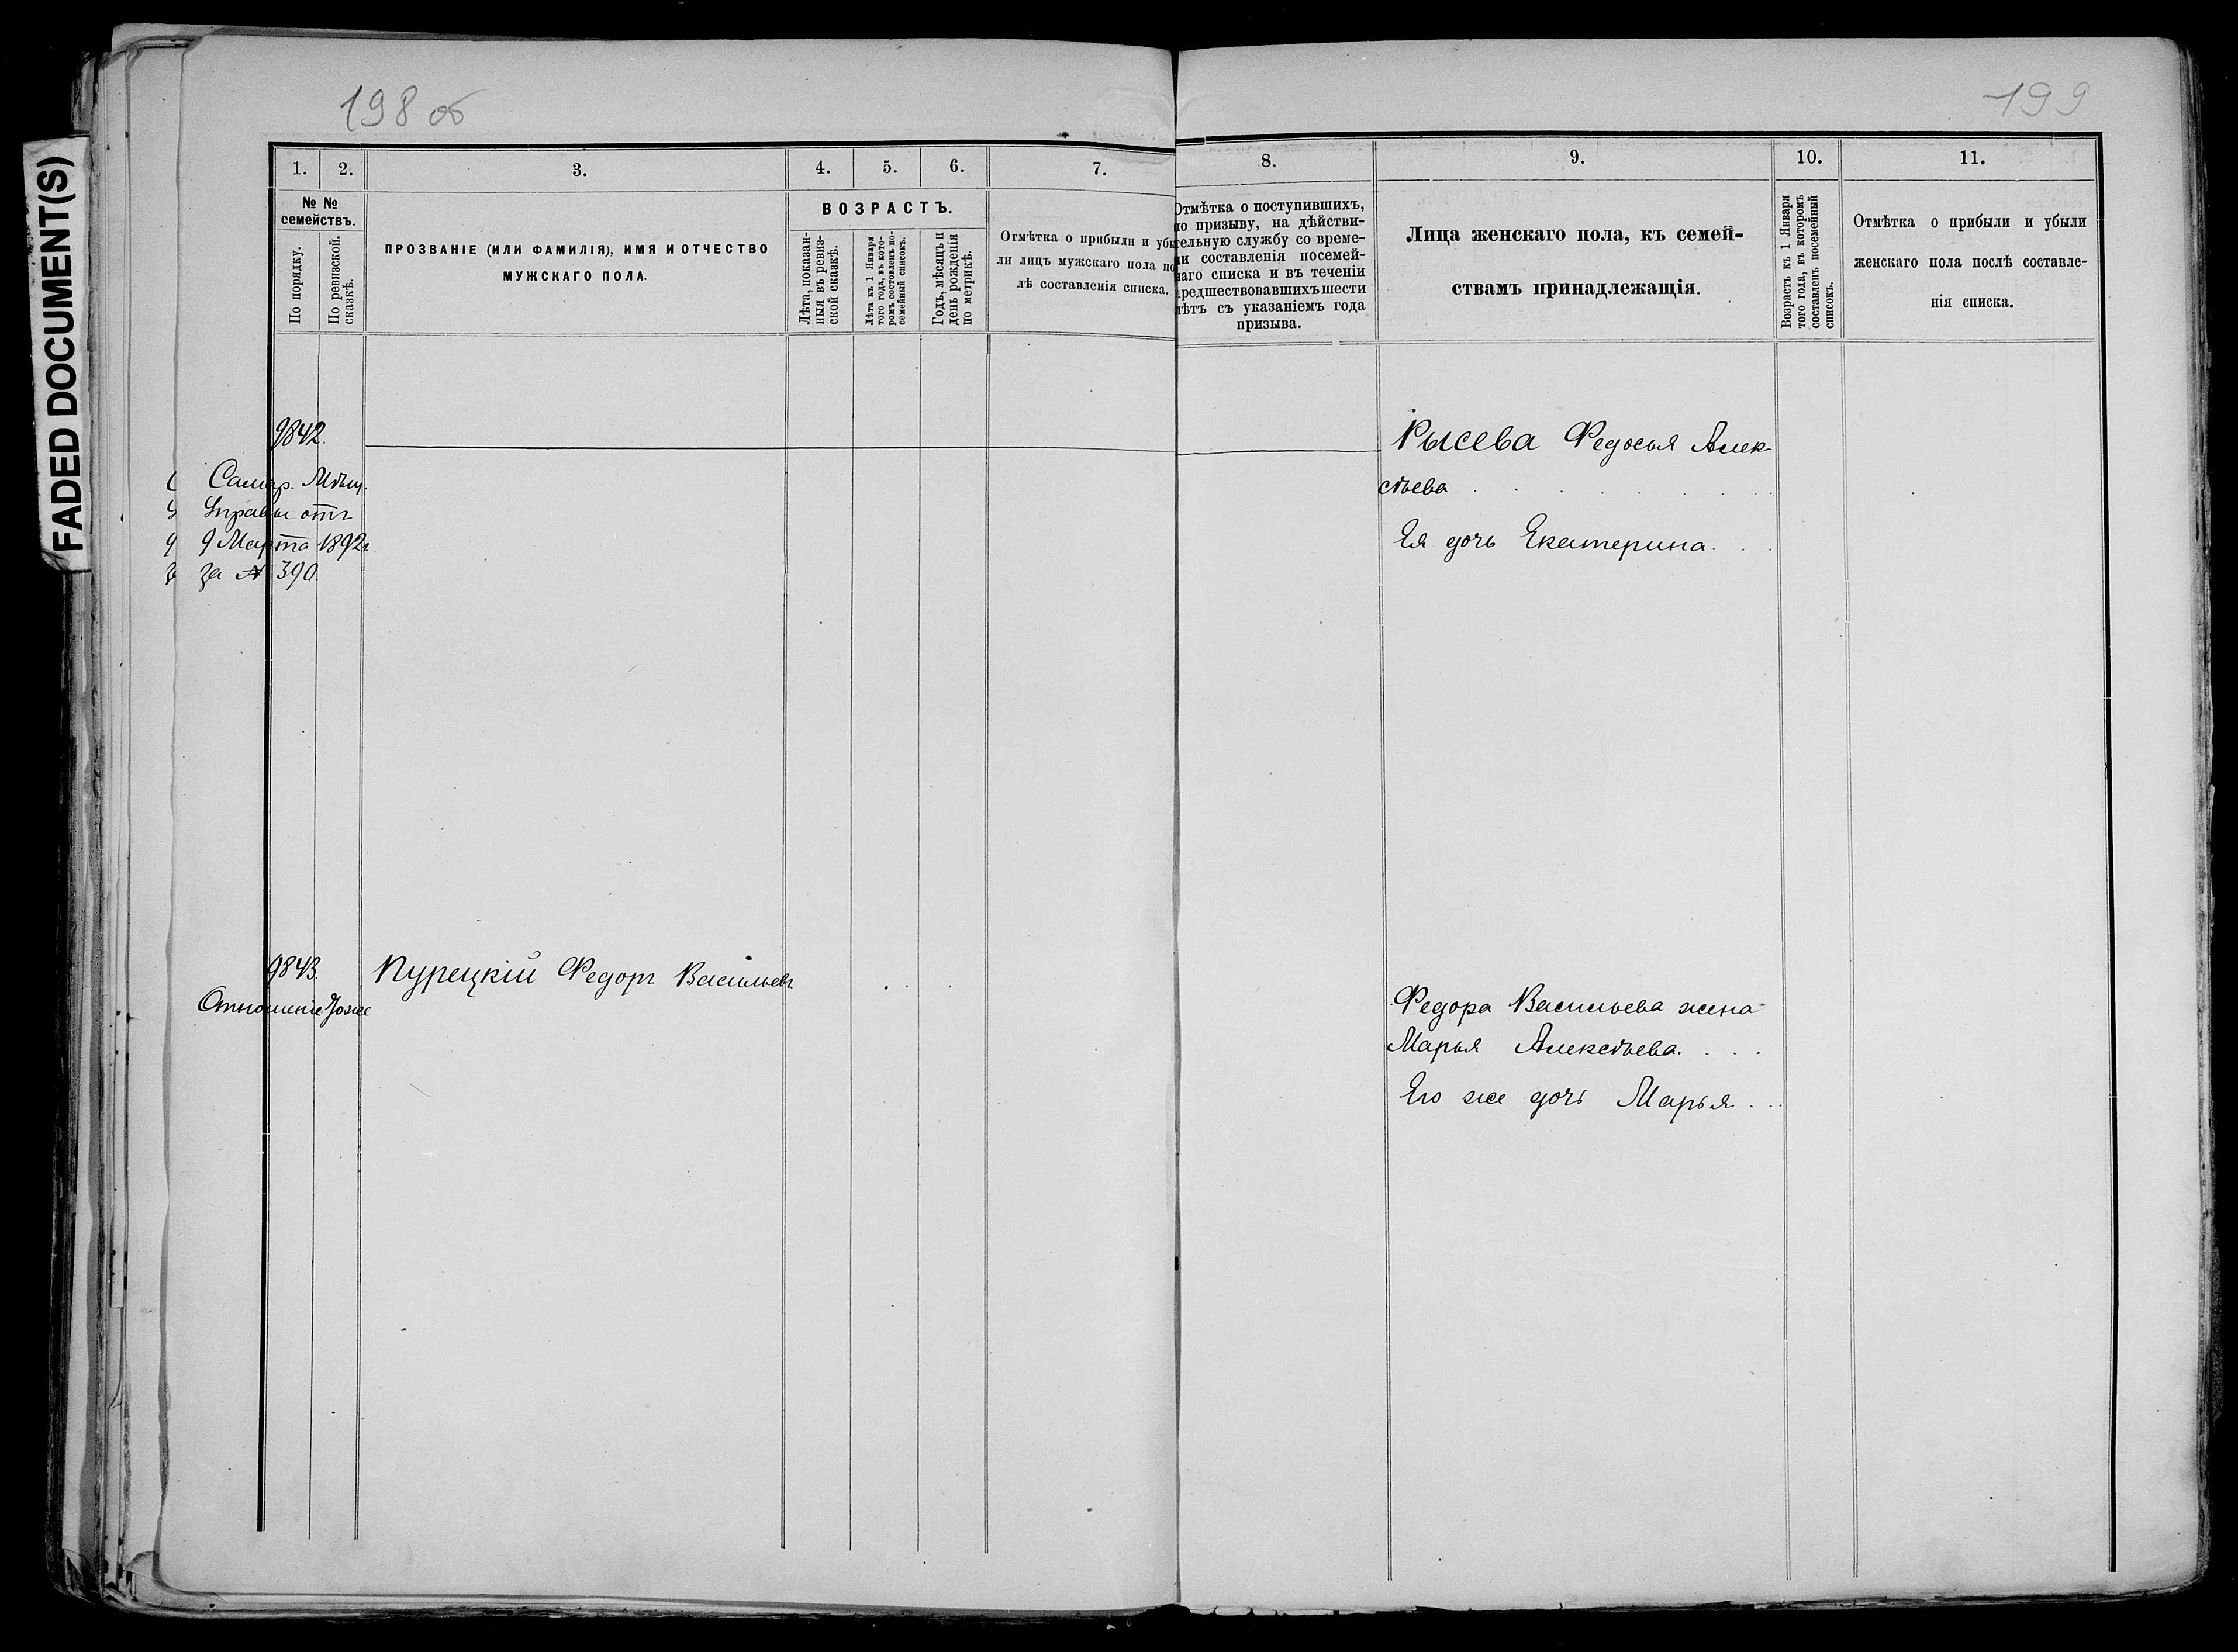 FADED DOCUMENT(S)
198 об
199
1. 2. 3. 4. 5. 6. 7.
№ №
семействъ.
По порядку.
По ревизской
сказкѣ.
ПРОЗВАНІЕ (ИЛИ ФАМИЛІЯ), ИМЯ И ОТЧЕСТВО
МУЖСКАГО ПОЛА.
ВОЗРАСТЪ.
Лѣта, показан-
ныя въ ревиз-
ской сказкѣ.
Лѣта къ 1 Января
того года, въ кото-
ромъ составленъ по-
семейный списокъ.
Годъ, мѣсяцъ и
день рожденія
по метрикѣ.
Отмѣтка о прибыли и убы
ли лицъ мужскаго пола по
лѣ составленія списка.
8. 9. 10. 11.
Отмѣтка о поступившихъ,
по призыву, на дѣйстви-
тельную службу со време-
ни составленія посемей-
наго списка и въ теченіи
предшествовавшихъ шести
лѣтъ съ указаніемъ года
призыва.
Лица женскаго пола, къ семей-
ствамъ принадлежащія.
Возрастъ къ 1 Января
того года, въ которомъ
составленъ посемейный
списокъ.
Отмѣтка о прибыли и убыли
женскаго пола послѣ составле-
нія списка.
9842.
Самар. Мѣщ.
Управы отъ
9 Марта 1892 г
за № 390
Рысева Федосья Алек-
сѣева
Ея дочь Екатерина.
9843.
Отношеніе тоже
Пурецкій Федоръ Васильевъ
Федора Васильева жена
Марья Алексѣева.
Его же дочь Марья